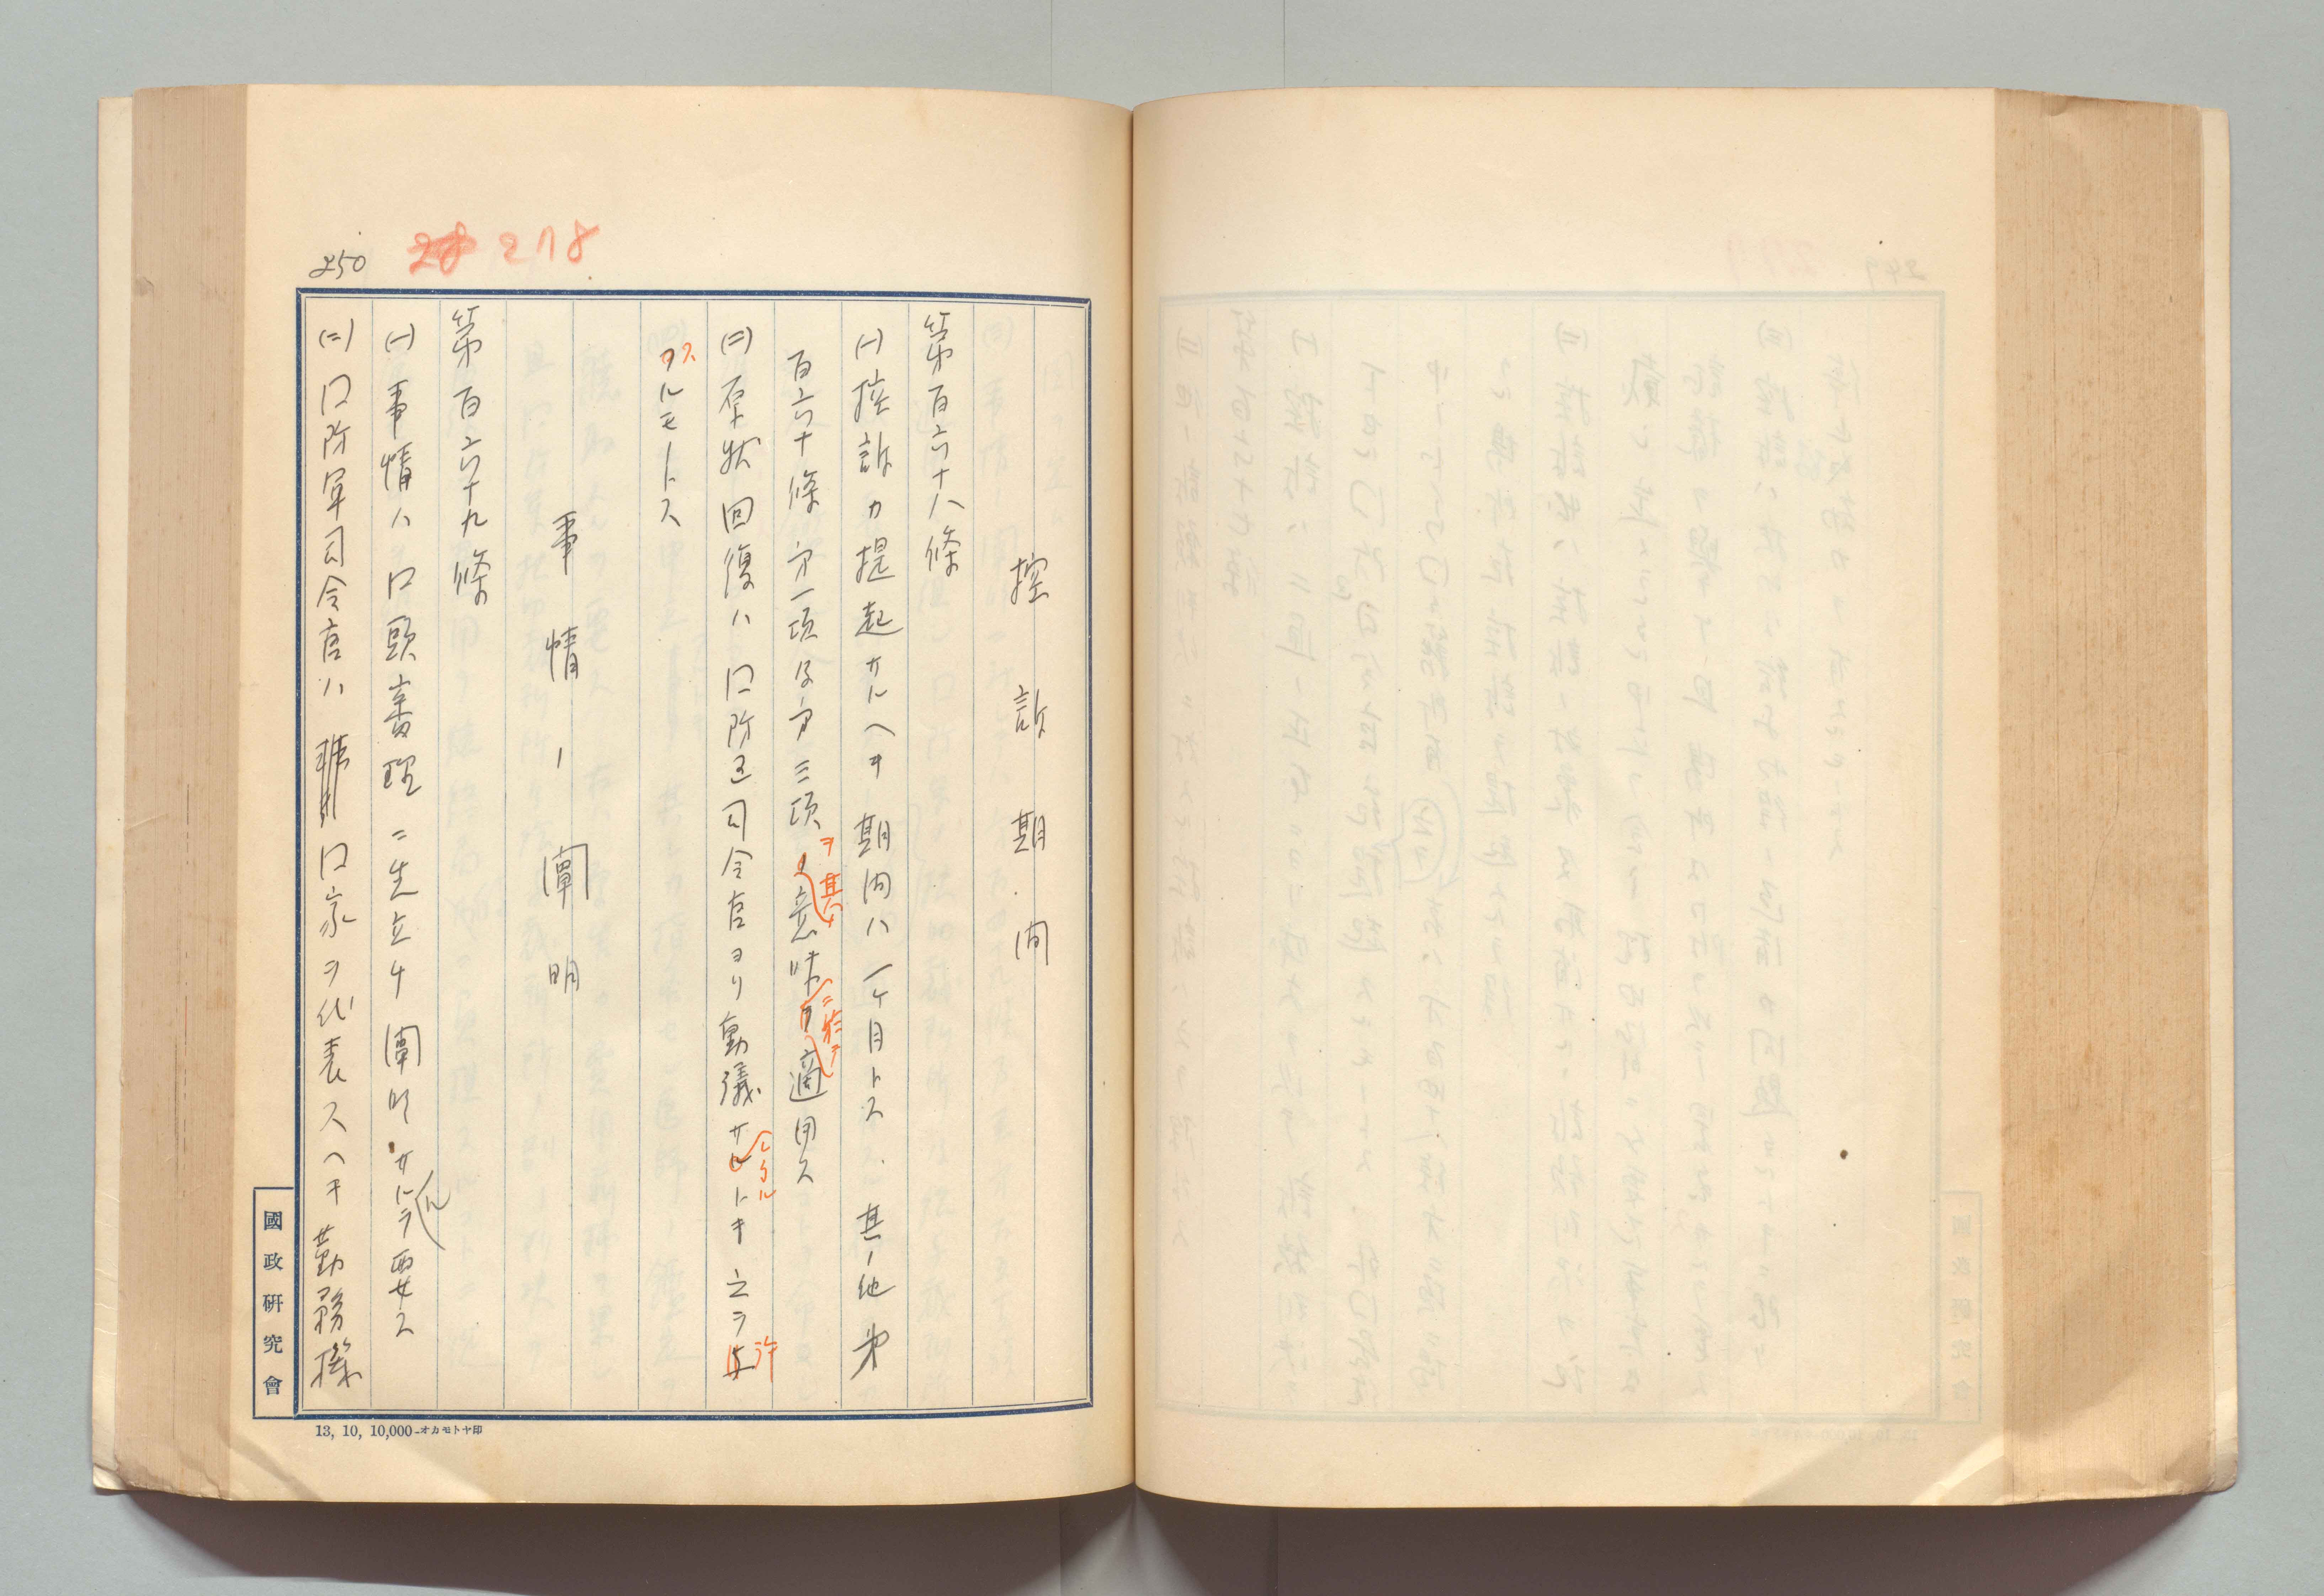 250
218
控訴期間
第百六十八條
(一)控訴カ提起サルヘキ期内ハ一ケ月トス 其ノ他第
百六十條第一項及第三項ヲ其ノ意味ニ於テ適用ス
(二)原状回復ハ口防軍司令官ヨリ動議セラルルトキ之ヲ許
スルモノトス
事情ノ闡明
第百六十九條
(一)事情ハ口頭審理ニ先立チ闡明サルルヲ要ス
(二)口防軍司令官ハ口家ヲ代表スヘキ勤務機
國政研究會
13, 10, 10,000-オカモトヤ印